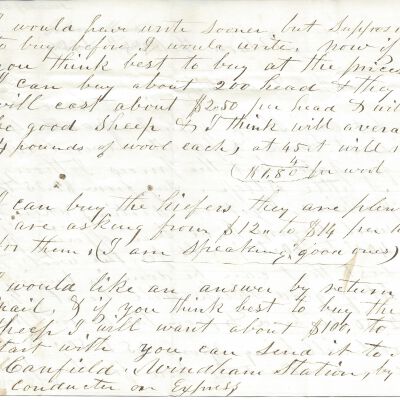 I would have write sooner but Suppose
to buy before I would write, now if
you think best to buy at the prices
I can buy about 200 head & they
will cost about $2.50 per head & will
be good Sheep & I think will avera
4 pounds of wool each, at 45ct will
4
$1,80 for wool
I can buy the heifers, they are plen
are asking from $12.. to $14 per
for them, (I am speaking good ones)
I would like an answer by return
mail, & if you think best to buy the
Sheep I will want about $100, to
start with you can send it to
Canfield, Windham Station, by
conductor on Express